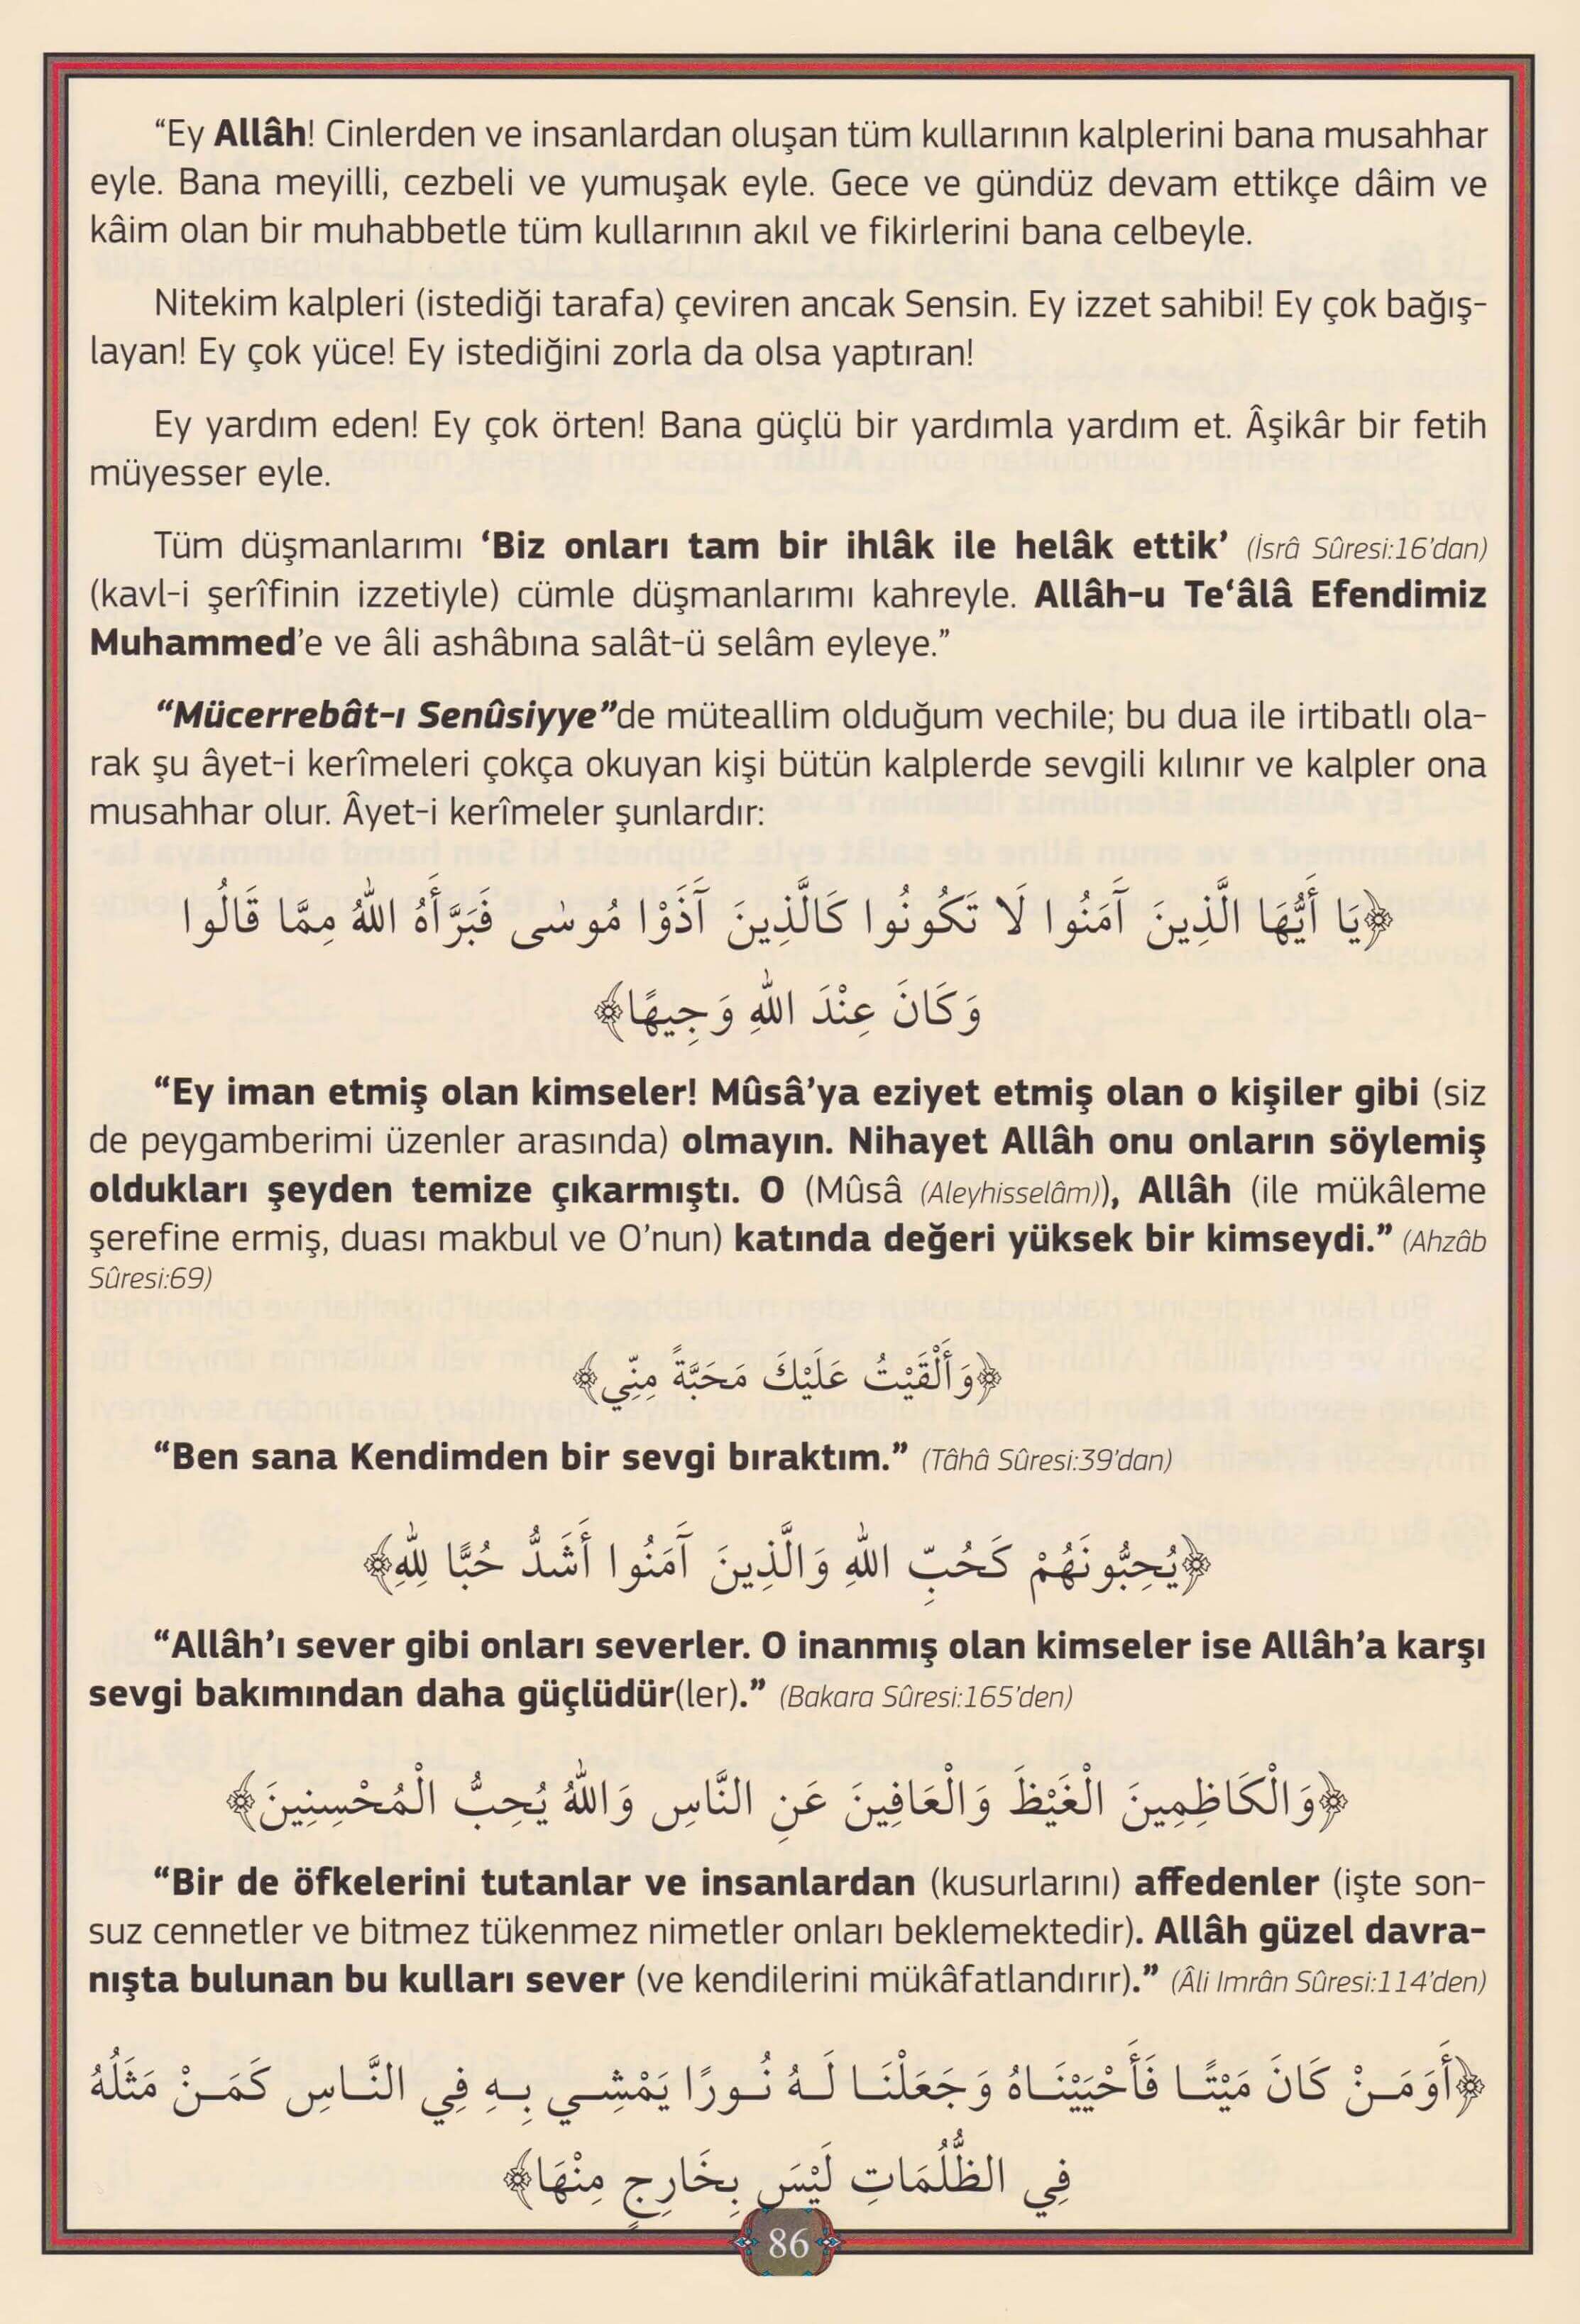 “Ey Allâh! Cinlerden ve insanlardan oluşan tüm kullarının kalplerini bana musahhar
eyle. Bana meyilli, cezbeli ve yumuşak eyle. Gece ve gündüz devam ettikçe dâim ve
kâim olan bir muhabbetle tüm kullarının akıl ve fikirlerini bana celbeyle.
Nitekim kalpleri (istediği tarafa) çeviren ancak Sensin. Ey izzet sahibi! Ey çok bağış-
layan! Ey çok yüce! Ey istediğini zorla da olsa yaptıran!
Ey yardım eden! Ey çok örten! Bana güçlü bir yardımla yardım et. Âşikâr bir fetih
müyesser eyle.
Tüm düşmanlarımı ‘Biz onları tam bir ihlâk ile helâk ettik’ (İsrâ Sûresi:16’dan)
(kavl-i şerîfinin izzetiyle) cümle düşmanlarımı kahreyle. Allâh-u Te‘âlâ Efendimiz
Muhammed’e ve âli ashâbına salât-ü selâm eyleye.”
“Mücerrebât-ı Senûsiyye”de müteallim olduğum vechile; bu dua ile irtibatlı ola-
rak şu âyet-i kerîmeleri çokça okuyan kişi bütün kalplerde sevgili kılınır ve kalpler ona
musahhar olur. Âyet-i kerîmeler şunlardır:
﴿يَا أَيُّهَا الَّذِينَ آمَنُوا لَا تَكُونُوا كَالَّذِينَ آذَوْا مُوسٰى فَبَرَّأَهُ اللّٰهُ مِمَّا قَالُوا
وَكَانَ عِنْدَ اللّٰهِ وَجِيهًا﴾
“Ey iman etmiş olan kimseler! Mûsâ’ya eziyet etmiş olan o kişiler gibi (siz
de peygamberimi üzenler arasında) olmayın. Nihayet Allâh onu onların söylemiş
oldukları şeyden temize çıkarmıştı. O (Mûsâ (Aleyhisselâm)), Allâh (ile mükâleme
şerefine ermiş, duası makbul ve O’nun) katında değeri yüksek bir kimseydi.” (Ahzâb
Sûresi:69)
﴿وَأَلْقَيْتُ عَلَيْكَ مَحَبَّةً مِنِّي﴾
“Ben sana Kendimden bir sevgi bıraktım.” (Tâhâ Sûresi:39’dan)
﴿يُحِبُّونَهُمْ كَحُبِّ اللّٰهِ وَالَّذِينَ آمَنُوا أَشَدُّ حُبًّا لِلّٰهِ﴾
“Allâh’ı sever gibi onları severler. O inanmış olan kimseler ise Allâh’a karşı
sevgi bakımından daha güçlüdür(ler).” (Bakara Sûresi:165’den)
﴿وَالْكَاظِمِينَ الْغَيْظَ وَالْعَافِينَ عَنِ النَّاسِ وَاللّٰهُ يُحِبُّ الْمُحْسِنِينَ﴾
“Bir de öfkelerini tutanlar ve insanlardan (kusurlarını) affedenler (işte son-
suz cennetler ve bitmez tükenmez nimetler onları beklemektedir). Allâh güzel davra-
nışta bulunan bu kulları sever (ve kendilerini mükâfatlandırır).” (Âli Imrân Sûresi:114’den)
﴿أَوَمَنْ كَانَ مَيْتًا فَأَحْيَيْنَاهُ وَجَعَلْنَا لَهُ نُورًا يَمْشِي بِهِ فِي النَّاسِ كَمَنْ مَثَلُهُ
فِي الظُّلُمَاتِ لَيْسَ بِخَارِجٍ مِنْهَا﴾
86